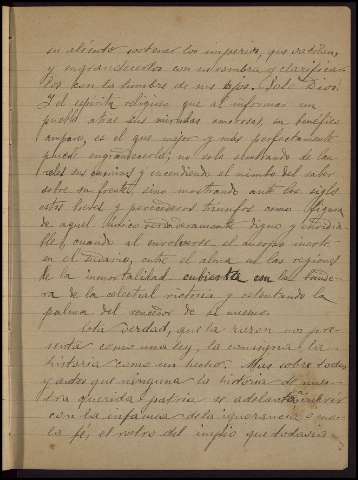 su aliento sostener los imperios, que vacilan,
y engrandecerlos con su sombra y clarificar
los con la lumbre de sus ojos. Solo Dios.
Y el espíritu religioso que al informar un
pueblo atrae sus miradas amorosas, su benéfico
amparo, es el que mejor y mas perfectamente
puede engrandecerlo; no solo sembrando de lau
reles sus caminos y encendiendo el nimbo del saber
sobre su frente, sino mostrando ante los siglos
estos lauros y perecederos triunfos como figura
de aquel único verdaderamente digno y envidia
ble, cuando al envolverse el cuerpo inerte
en el sudario, entre el alma en las regiones
de la inmortalidad cubierta con la bande-
ra de la celestial victoria y ostentando la
palma del vencedor de si mismo.
Esta verdad, que la razon nos pre-
senta como una ley, la consigna la
historia como un hecho. Mas sobre todo,
y antes que ninguna la historia de nues-
tra querida patria se adelanta
con la infamia de la ignorancia
la fé, el rostro del impío que todavia